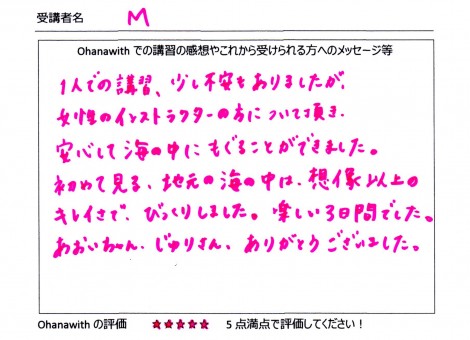 受講者名 M
Ohanawith での講習の感想やこれから受けられる方へのメッセージ等
1人での講習、少し不安もありましたが、
女性のインストラクターの方について頂き、
安心して海の中にもぐることができました。
初めて見る、地元の海の中は、想像以上の
キレイさで、びっくりしました。楽しい3日間でした。
あおいちゃん、じゅりさん、ありがとうございました。
Ohanawith の評価 ★★★★★ 5点満点で評価してください!